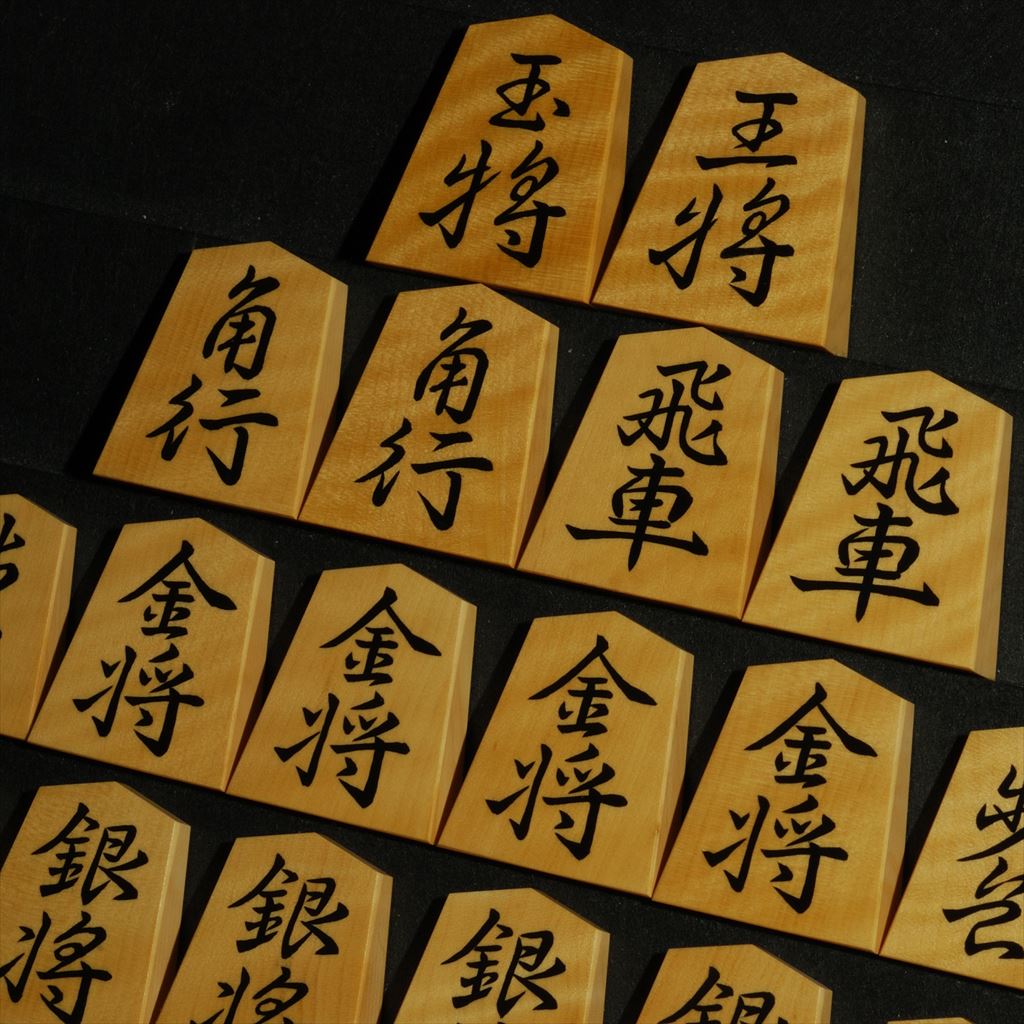 玉将
王将
角行
角行
飛車
飛車
金将
金将
金将
金将
歩兵
銀将
銀将
銀
銀